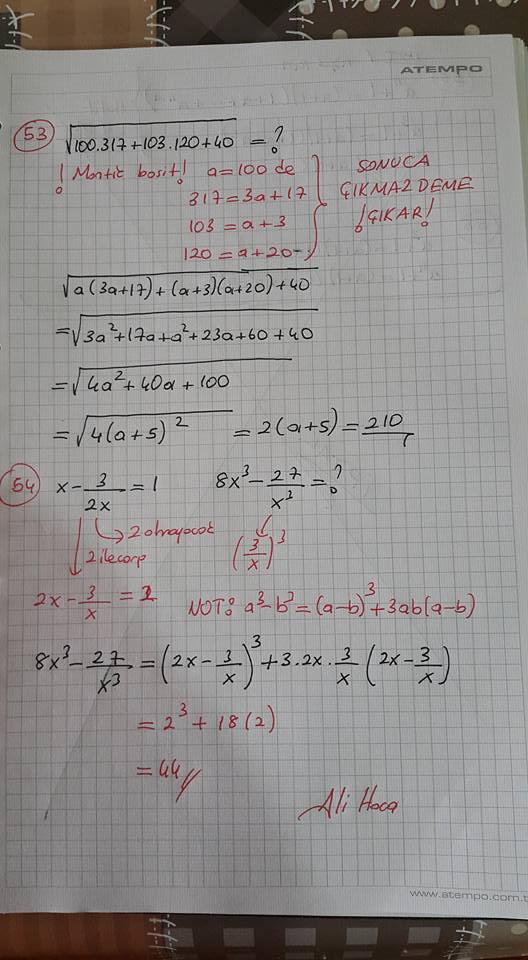 ATEMPO
53 √100.317+103.120+40 = ?
! Mantık basit! a=100 de
317=3a+17
103=a+3
120=a+20
SONUCA
ÇIKMAZ DEME
!ÇIKAR!
√a(3a+17)+(a+3)(a+20)+40
=√3a²+17a+a²+23a+60+40
=√4a²+40a+100
=√4(a+5)² =2(a+5)=210
54 x-3/2x=1 8x³-27/x³=?
2 olmayacak
2 ile çarp (3/x)³
2x-3/x=2 NOT: a³-b³=(a-b)³+3ab(a-b)
8x³-27/x³=(2x-3/x)³+3.2x.3/x(2x-3/x)
=2³+18(2)
=44
Ali Hoca
www.atempo.com.t